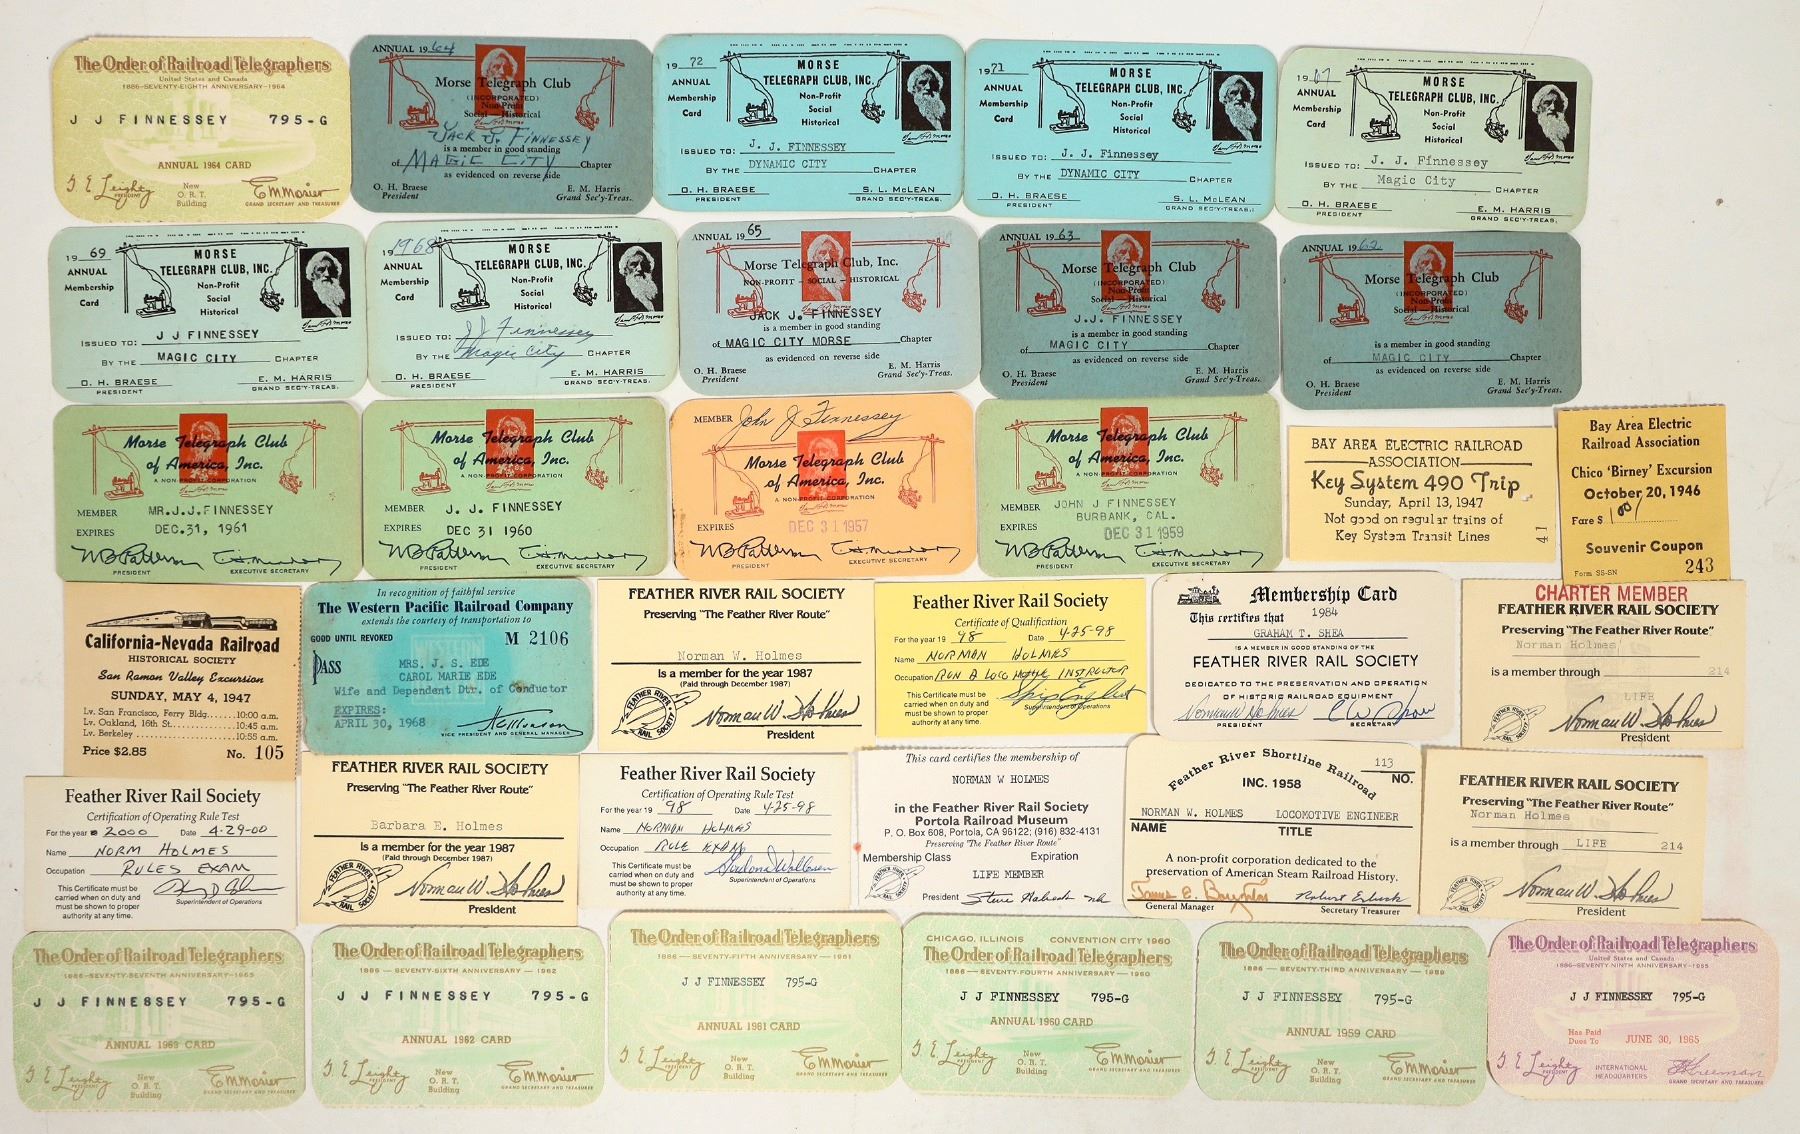 The Order of Railroad Telegraphers
United States and Canada
1886-SEVENTY-EIGHTH ANNIVERSARY-1964
J J FINNESSEY 795-G
ANNUAL 1964 CARD
G E Leighty
PRESIDENT
New
O. R. T.
Building
E M Mosier
GRAND SECRETARY AND TREASURER
ANNUAL 1964
Morse Telegraph Club
(INCORPORATED)
Non-Profit
Social - Historical
Jack J. Finnessey
is a member in good standing
of MAGIC CITY Chapter
as evidenced on reverse side
O. H. Braese
President
E. M. Harris
Grand Sec'y-Treas.
1972
ANNUAL
Membership
Card
MORSE
TELEGRAPH CLUB, INC.
Non-Profit
Social
Historical
ISSUED TO: J. J. FINNESSEY
BY THE DYNAMIC CITY CHAPTER
O. H. BRAESE
PRESIDENT
S. L. McLEAN
GRAND SEC'Y-TREAS.
1971
ANNUAL
Membership
Card
MORSE
TELEGRAPH CLUB, INC.
Non-Profit
Social
Historical
ISSUED TO: J. J. Finnessey
BY THE DYNAMIC CITY CHAPTER
O. H. BRAESE
PRESIDENT
S. L. McLEAN
GRAND SEC'Y-TREAS.
1967
ANNUAL
Membership
Card
MORSE
TELEGRAPH CLUB, INC.
Non-Profit
Social
Historical
ISSUED TO: J. J. Finnessey
BY THE Magic City CHAPTER
O. H. BRAESE
PRESIDENT
E. M. HARRIS
GRAND SEC'Y-TREAS.
1969
ANNUAL
Membership
Card
MORSE
TELEGRAPH CLUB, INC.
Non-Profit
Social
Historical
ISSUED TO: J J FINNESSEY
BY THE MAGIC CITY CHAPTER
O. H. BRAESE
PRESIDENT
E. M. HARRIS
GRAND SEC'Y-TREAS.
19 1968
ANNUAL
Membership
Card
MORSE
TELEGRAPH CLUB, INC.
Non-Profit
Social
Historical
ISSUED TO: J J Finnessey
BY THE Magic City CHAPTER
O. H. BRAESE
PRESIDENT
E. M. HARRIS
GRAND SEC'Y-TREAS.
ANNUAL 1965
Morse Telegraph Club, Inc.
NON-PROFIT - SOCIAL - HISTORICAL
JACK J. FINNESSEY
is a member in good standing
of MAGIC CITY MORSE Chapter
as evidenced on reverse side
O. H. Braese
President
E. M. Harris
Grand Sec'y-Treas.
ANNUAL 1963
Morse Telegraph Club
(INCORPORATED)
Non-Profit
Social - Historical
J.J. FINNESSEY
is a member in good standing
of MAGIC CITY Chapter
as evidenced on reverse side
O. H. Braese
President
E. M. Harris
Grand Sec'y-Treas.
ANNUAL 1962
Morse Telegraph Club
(INCORPORATED)
Non-Profit
Social - Historical
is a member in good standing
of MAGIC CITY Chapter
as evidenced on reverse side
O. H. Braese
President
E. M. Harris
Grand Sec'y-Treas.
Morse Telegraph Club
of America, Inc.
A NON-PROFIT CORPORATION
MEMBER MR.J.J.FINNESSEY
EXPIRES DEC.31, 1961
PRESIDENT
EXECUTIVE SECRETARY
Morse Telegraph Club
of America, Inc.
A NON-PROFIT CORPORATION
MEMBER J. J. FINNESSEY
EXPIRES DEC 31 1960
PRESIDENT
EXECUTIVE SECRETARY
MEMBER John J Finnessey
Morse Telegraph Club
of America, Inc.
A NON-PROFIT CORPORATION
EXPIRES DEC 31 1957
PRESIDENT
EXECUTIVE SECRETARY
Morse Telegraph Club
of America, Inc.
A NON-PROFIT CORPORATION
MEMBER JOHN J FINNESSEY
BURBANK, CAL.
EXPIRES DEC 31 1959
PRESIDENT
EXECUTIVE SECRETARY
BAY AREA ELECTRIC RAILROAD
ASSOCIATION
Key System 490 Trip
Sunday, April 13, 1947
Not good on regular trains of
Key System Transit Lines
41
Bay Area Electric
Railroad Association
Chico 'Birney' Excursion
October 20, 1946
Fare $ 1 00/
Souvenir Coupon
Form SS-SN 243
California-Nevada Railroad
HISTORICAL SOCIETY
San Ramon Valley Excursion
SUNDAY, MAY 4, 1947
Lv. San Francisco, Ferry Bldg......10:00 a.m.
Lv. Oakland, 16th St................10:45 a.m.
Lv. Berkeley........................10:55 a.m.
Price $2.85 No. 105
In recognition of faithful service
The Western Pacific Railroad Company
extends the courtesy of transportation to
GOOD UNTIL REVOKED M 2106
PASS
MRS. J. S. EDE
CAROL MARIE EDE
Wife and Dependent Dtr. of Conductor
EXPIRES:
APRIL 30, 1968
VICE PRESIDENT AND GENERAL MANAGER
FEATHER RIVER RAIL SOCIETY
Preserving "The Feather River Route"
Norman W. Holmes
is a member for the year 1987
(Paid through December 1987)
FEATHER RIVER RAIL SOCIETY
Norman W. Holmes
President
Feather River Rail Society
Certificate of Qualification
For the year 1998 Date 4-25-98
Name NORMAN HOLMES
Occupation RUN A LOCOMOTIVE INSTRUCTOR
This Certificate must be
carried when on duty and
must be shown to proper
authority at any time.
Superintendent of Operations
Membership Card
1984
This certifies that
GRAHAM T. SHEA
IS A MEMBER IN GOOD STANDING OF THE
FEATHER RIVER RAIL SOCIETY
DEDICATED TO THE PRESERVATION AND OPERATION
OF HISTORIC RAILROAD EQUIPMENT
Norman W Holmes
PRESIDENT
SECRETARY
CHARTER MEMBER
FEATHER RIVER RAIL SOCIETY
Preserving "The Feather River Route"
Norman Holmes
is a member through 214
LIFE
Norman W. Holmes
President
Feather River Rail Society
Certification of Operating Rule Test
For the year 2000 Date 4-29-00
Name NORM HOLMES
Occupation RULES EXAM
This Certificate must be
carried when on duty and
must be shown to proper
authority at any time.
Superintendent of Operations
FEATHER RIVER RAIL SOCIETY
Preserving "The Feather River Route"
Barbara E. Holmes
is a member for the year 1987
(Paid through December 1987)
FEATHER RIVER RAIL SOCIETY
Norman W. Holmes
President
Feather River Rail Society
Certification of Operating Rule Test
For the year 1998 Date 4-25-98
Name NORMAN HOLMES
Occupation RULE EXAM
This Certificate must be
carried when on duty and
must be shown to proper
authority at any time.
Superintendent of Operations
This card certifies the membership of
NORMAN W HOLMES
in the Feather River Rail Society
Portola Railroad Museum
P. O. Box 608, Portola, CA 96122; (916) 832-4131
Preserving "The Feather River Route"
Membership Class Expiration
LIFE MEMBER
President
Feather River Shortline Railroad
INC. 1958
113
NO.
NORMAN W. HOLMES LOCOMOTIVE ENGINEER
NAME TITLE
A non-profit corporation dedicated to the
preservation of American Steam Railroad History.
General Manager
Secretary Treasurer
FEATHER RIVER RAIL SOCIETY
Preserving "The Feather River Route"
Norman Holmes
is a member through LIFE 214
Norman W. Holmes
President
The Order of Railroad Telegraphers
1886-SEVENTY-SEVENTH ANNIVERSARY-1963
J J FINNESSEY 795-G
ANNUAL 1963 CARD
G E Leighty
PRESIDENT
New
O. R. T.
Building
E M Mosier
GRAND SECRETARY AND TREASURER
The Order of Railroad Telegraphers
1886 — SEVENTY-SIXTH ANNIVERSARY — 1962
J J FINNESSEY 795-G
ANNUAL 1962 CARD
G. E. Leighty
PRESIDENT
New
O. R. T.
Building
E M Mosier
GRAND SECRETARY AND TREASURER
The Order of Railroad Telegraphers
1886 — SEVENTY-FIFTH ANNIVERSARY — 1961
J J FINNESSEY 795-G
ANNUAL 1961 CARD
G. E. Leighty
PRESIDENT
New
O. R. T.
Building
E M Mosier
GRAND SECRETARY AND TREASURER
CHICAGO, ILLINOIS CONVENTION CITY 1960
The Order of Railroad Telegraphers
1886 — SEVENTY-FOURTH ANNIVERSARY — 1960
J J FINNESSEY 795-G
ANNUAL 1960 CARD
G. E. Leighty
PRESIDENT
New
O. R. T.
Building
E M Mosier
GRAND SECRETARY AND TREASURER
The Order of Railroad Telegraphers
1886 — SEVENTY-THIRD ANNIVERSARY — 1959
J J FINNESSEY 795-G
ANNUAL 1959 CARD
G. E. Leighty
PRESIDENT
New
O. R. T.
Building
E M Mosier
GRAND SECRETARY AND TREASURER
The Order of Railroad Telegraphers
United States and Canada
1886-SEVENTY-NINTH ANNIVERSARY-1965
J J FINNESSEY 795-G
Has Paid
Dues To JUNE 30, 1965
G. E. Leighty
PRESIDENT
INTERNATIONAL
HEADQUARTERS
GRAND SECRETARY AND TREASURER